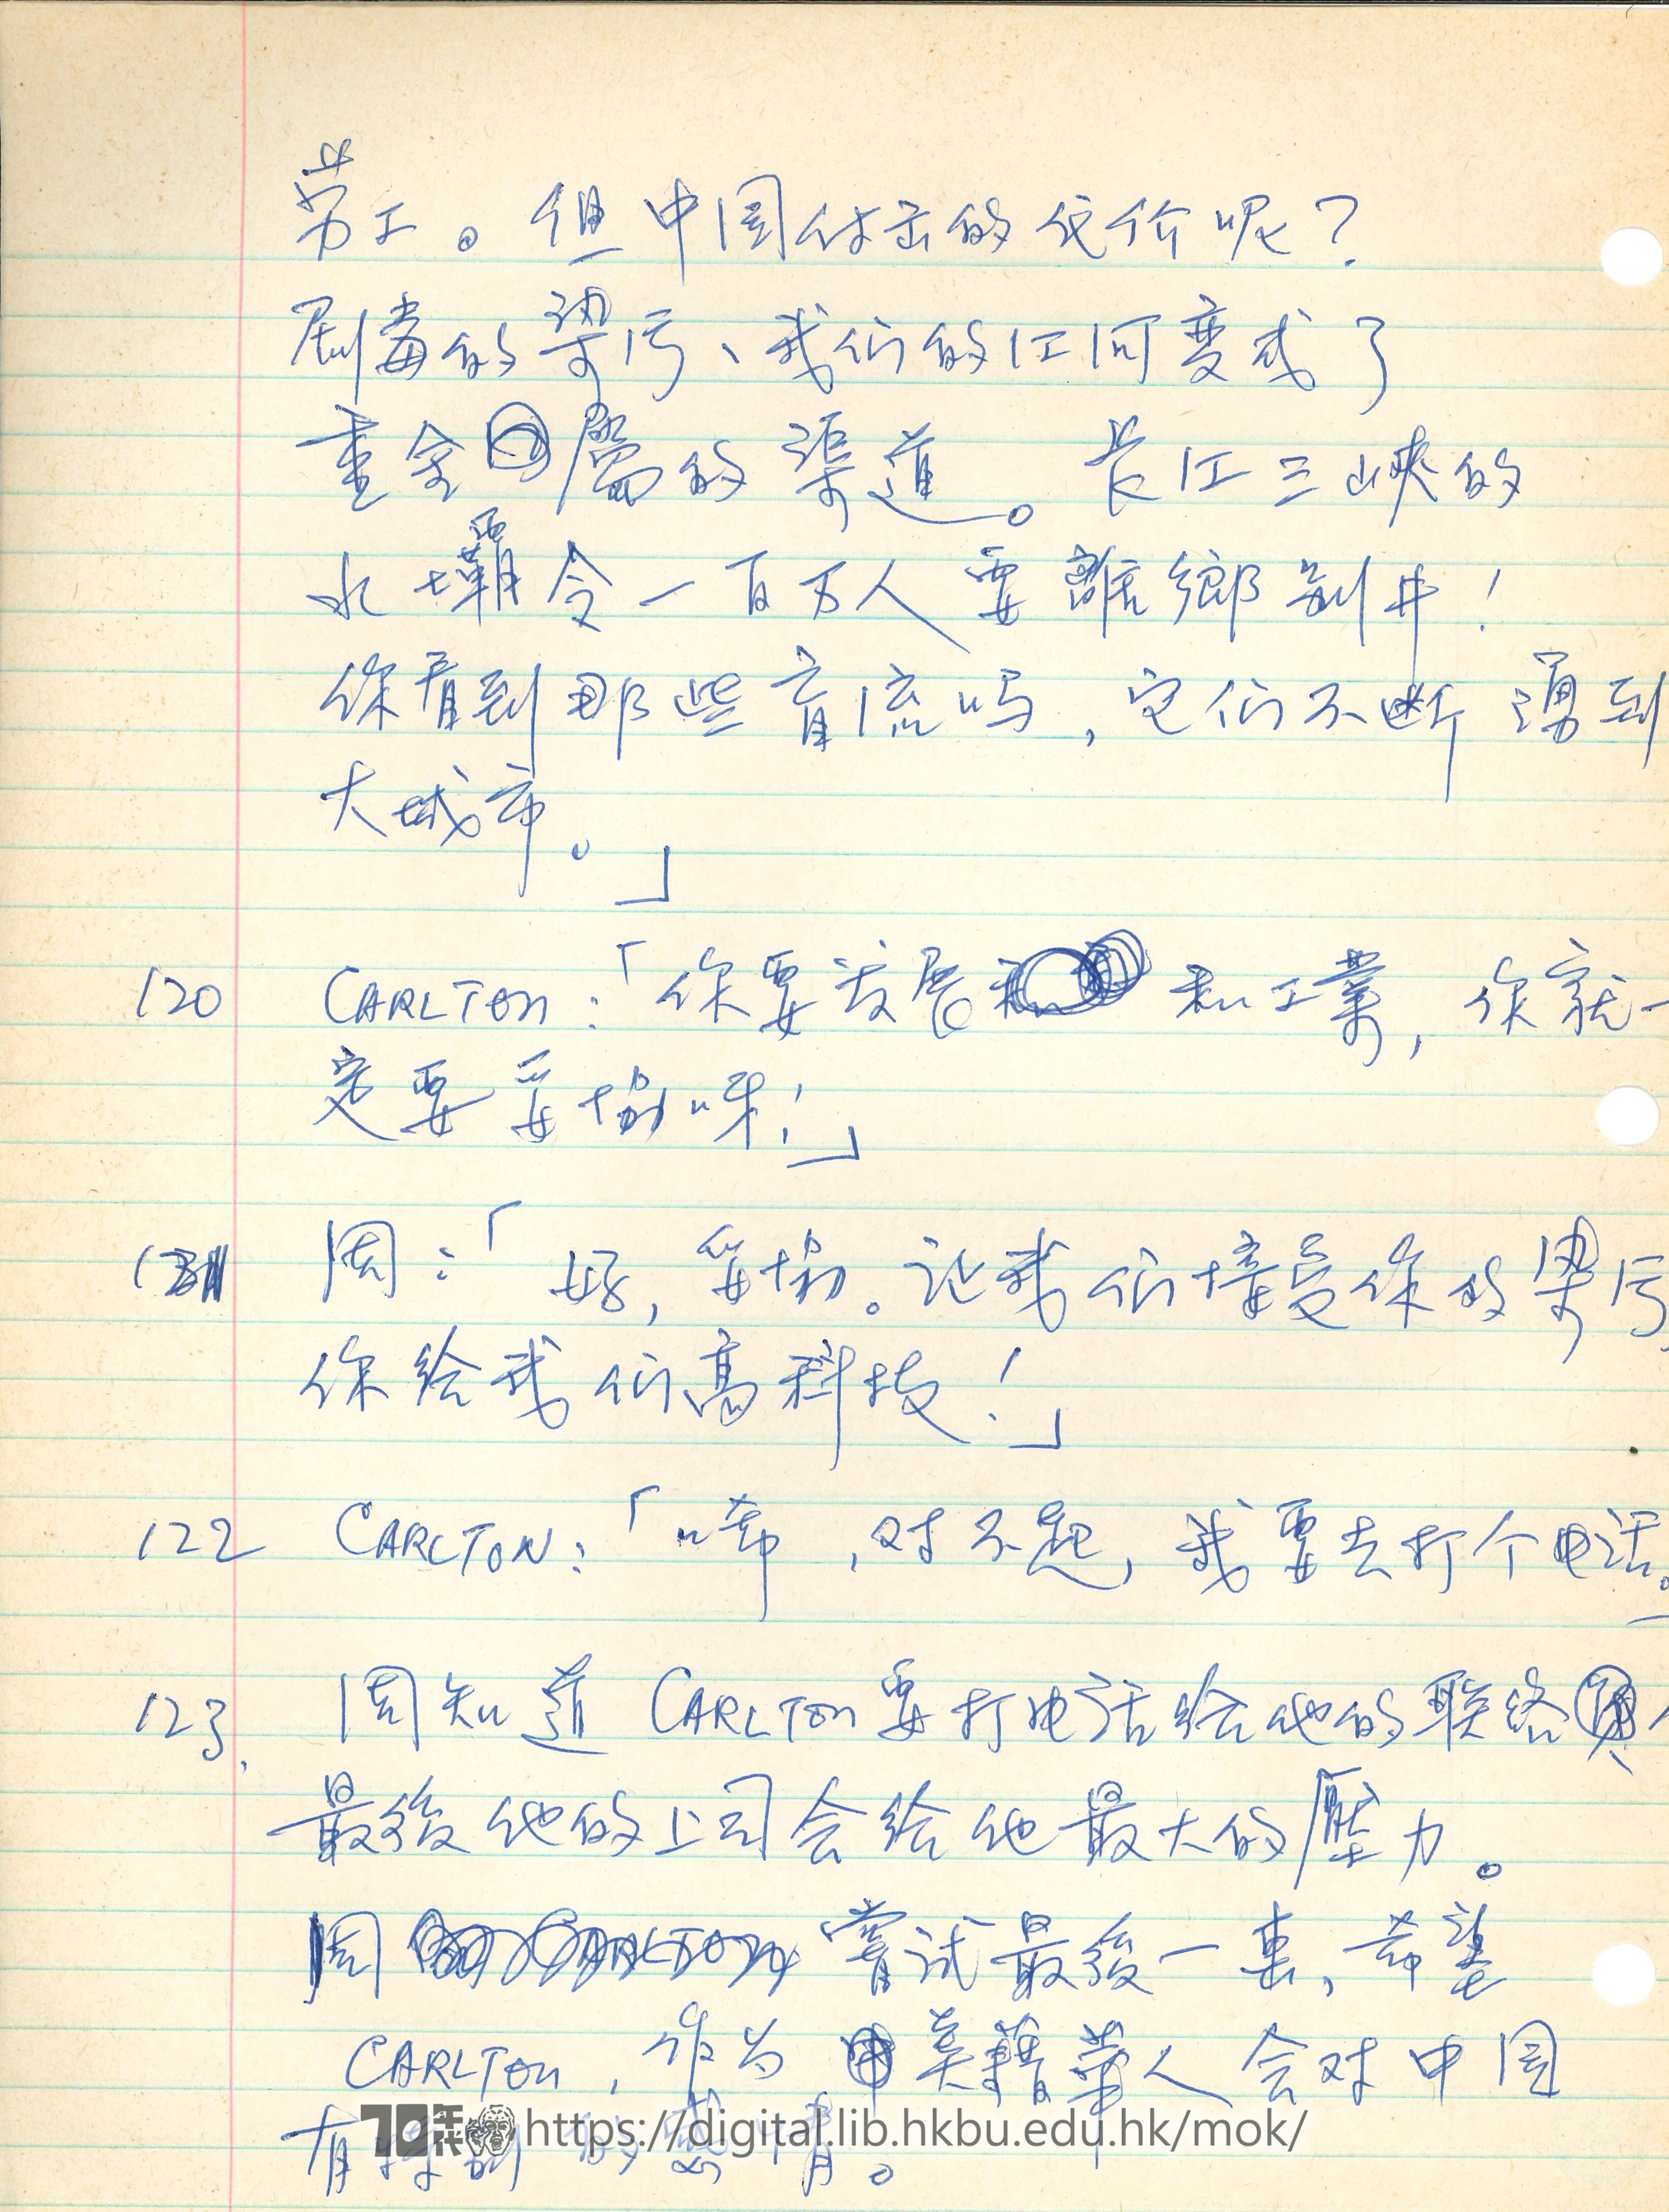 劳工。但中国付出的代价呢?
剧毒的染污、我们的江河变成了
重金屬的渠道。長江三峡的
水壩令一百万人要離鄉别井!
你看到那些盲流吗,它们不断湧到
大城市。」
120 CARLTON:「你要发展 和工業,你就一
定要妥协嘛!」
121 周:「好,妥协。让我们接受你的染污,
你给我们高科技!」
122 CARLTON:「唏,对不起,我要去打个电话。
123. 周知道 CARLTON 要打电话给他的联络
最後他的上司会给他最大的壓力。
周 CARLTON 嘗试最後一击,希望
CARLTON,作为美籍華人会对中国
有特别的感情。
70年代 https://digital.lib.hkbu.edu.hk/mok/